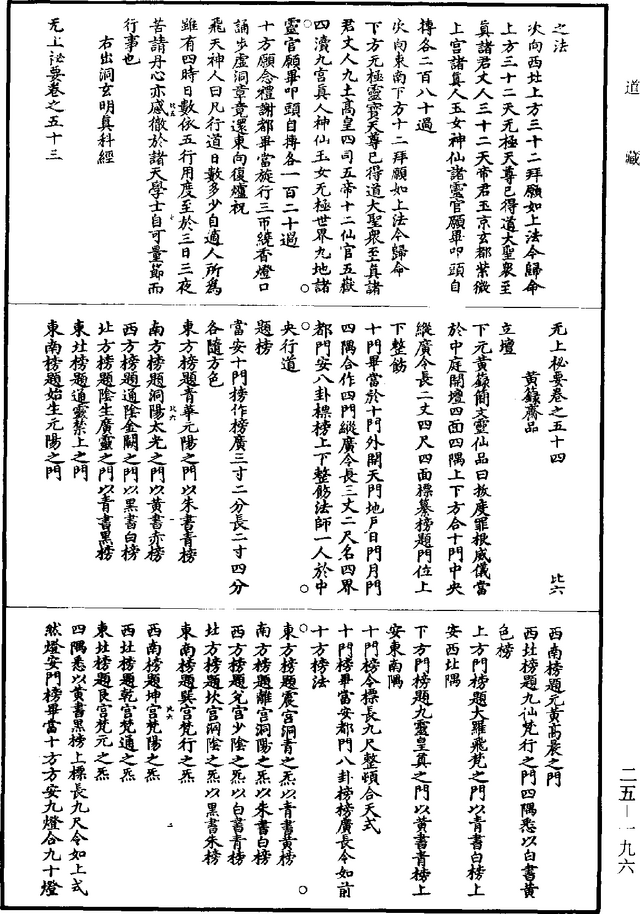 道藏
之法
次向西北上方三十二拜願如上法令歸命
上方三十二天无極天尊已得道大聖衆至
真諸君丈人三十二天帝君玉京玄都紫微
上宮諸真人玉女神仙諸靈官願畢叩頭自
搏各二百八十過
次向東南下方十二拜願如上法今歸命
下方无極靈寶天尊已得道大聖衆至真諸
君丈人九土高皇四司五帝十二仙官五嶽
四瀆九宮真人神仙玉女无極世界九地諸
靈官願畢叩頭自搏各一百二十過
十方願念禮謝都畢當旋行三帀繞香燈口
誦步虛洞章竟還東向復爐祝
飛天神人曰凡行道日數多少自適人所爲
雖有四時日數依五行用度至於三日三夜
苦請丹心亦感徹於諸天學士自可量節而
行事也
右出洞玄明真科經
无上祕要卷之五十三
无上祕要卷之五十四
比六
黃籙齋品
立壇
下元黃籙簡文靈仙品曰拔度罪根威儀當
於中庭開壇四面四隅上下方合十門中央
縱廣令長二丈四尺四面標纂榜題門位上
下整飾
十門畢當於十門外開天門地戶日門月門
四隅合作四門縱廣令長三丈二尺名四界
都門安八卦標榜上下整飭法師一人於中
央行道
題榜
當安十門榜作榜廣三寸二分長二寸四分
各隨方色
東方榜題青華元陽之門以朱書青榜
南方榜題洞陽太光之門以黃書赤榜
西方榜題通陰金闕之門以黑書白榜
北方榜題陰生廣靈之門以青書黑榜
東北榜題通靈禁上之門
東南榜題始生元陽之門
西南榜題元黃高晨之門
西北榜題九仙梵行之門四隅悉以白書黃
色榜
上方門榜題大羅飛梵之門以青書白榜上
安西北隅
下方門榜題九靈皇真之門以黃書青榜上
安東南隅
十門榜令標長九尺整頓合天式
十門榜畢當安都門八卦榜榜廣長令如前
十方榜法
東方榜題震宮洞青之炁以青書黃榜
南方榜題離宮洞陽之炁以朱書白榜
西方榜題兌宮少陰之炁以白書青榜
北方榜題坎宮洞陰之炁以黑書朱榜
東南榜題巽宮梵行之炁
西南榜題坤宮梵陽之炁
西北榜題乾宮梵通之炁
東北榜題艮宮梵元之炁
四隅悉以黃書黑榜上標長九尺令如上式
然燈安門榜畢當十方方安九燈合九十燈
二五—一九六